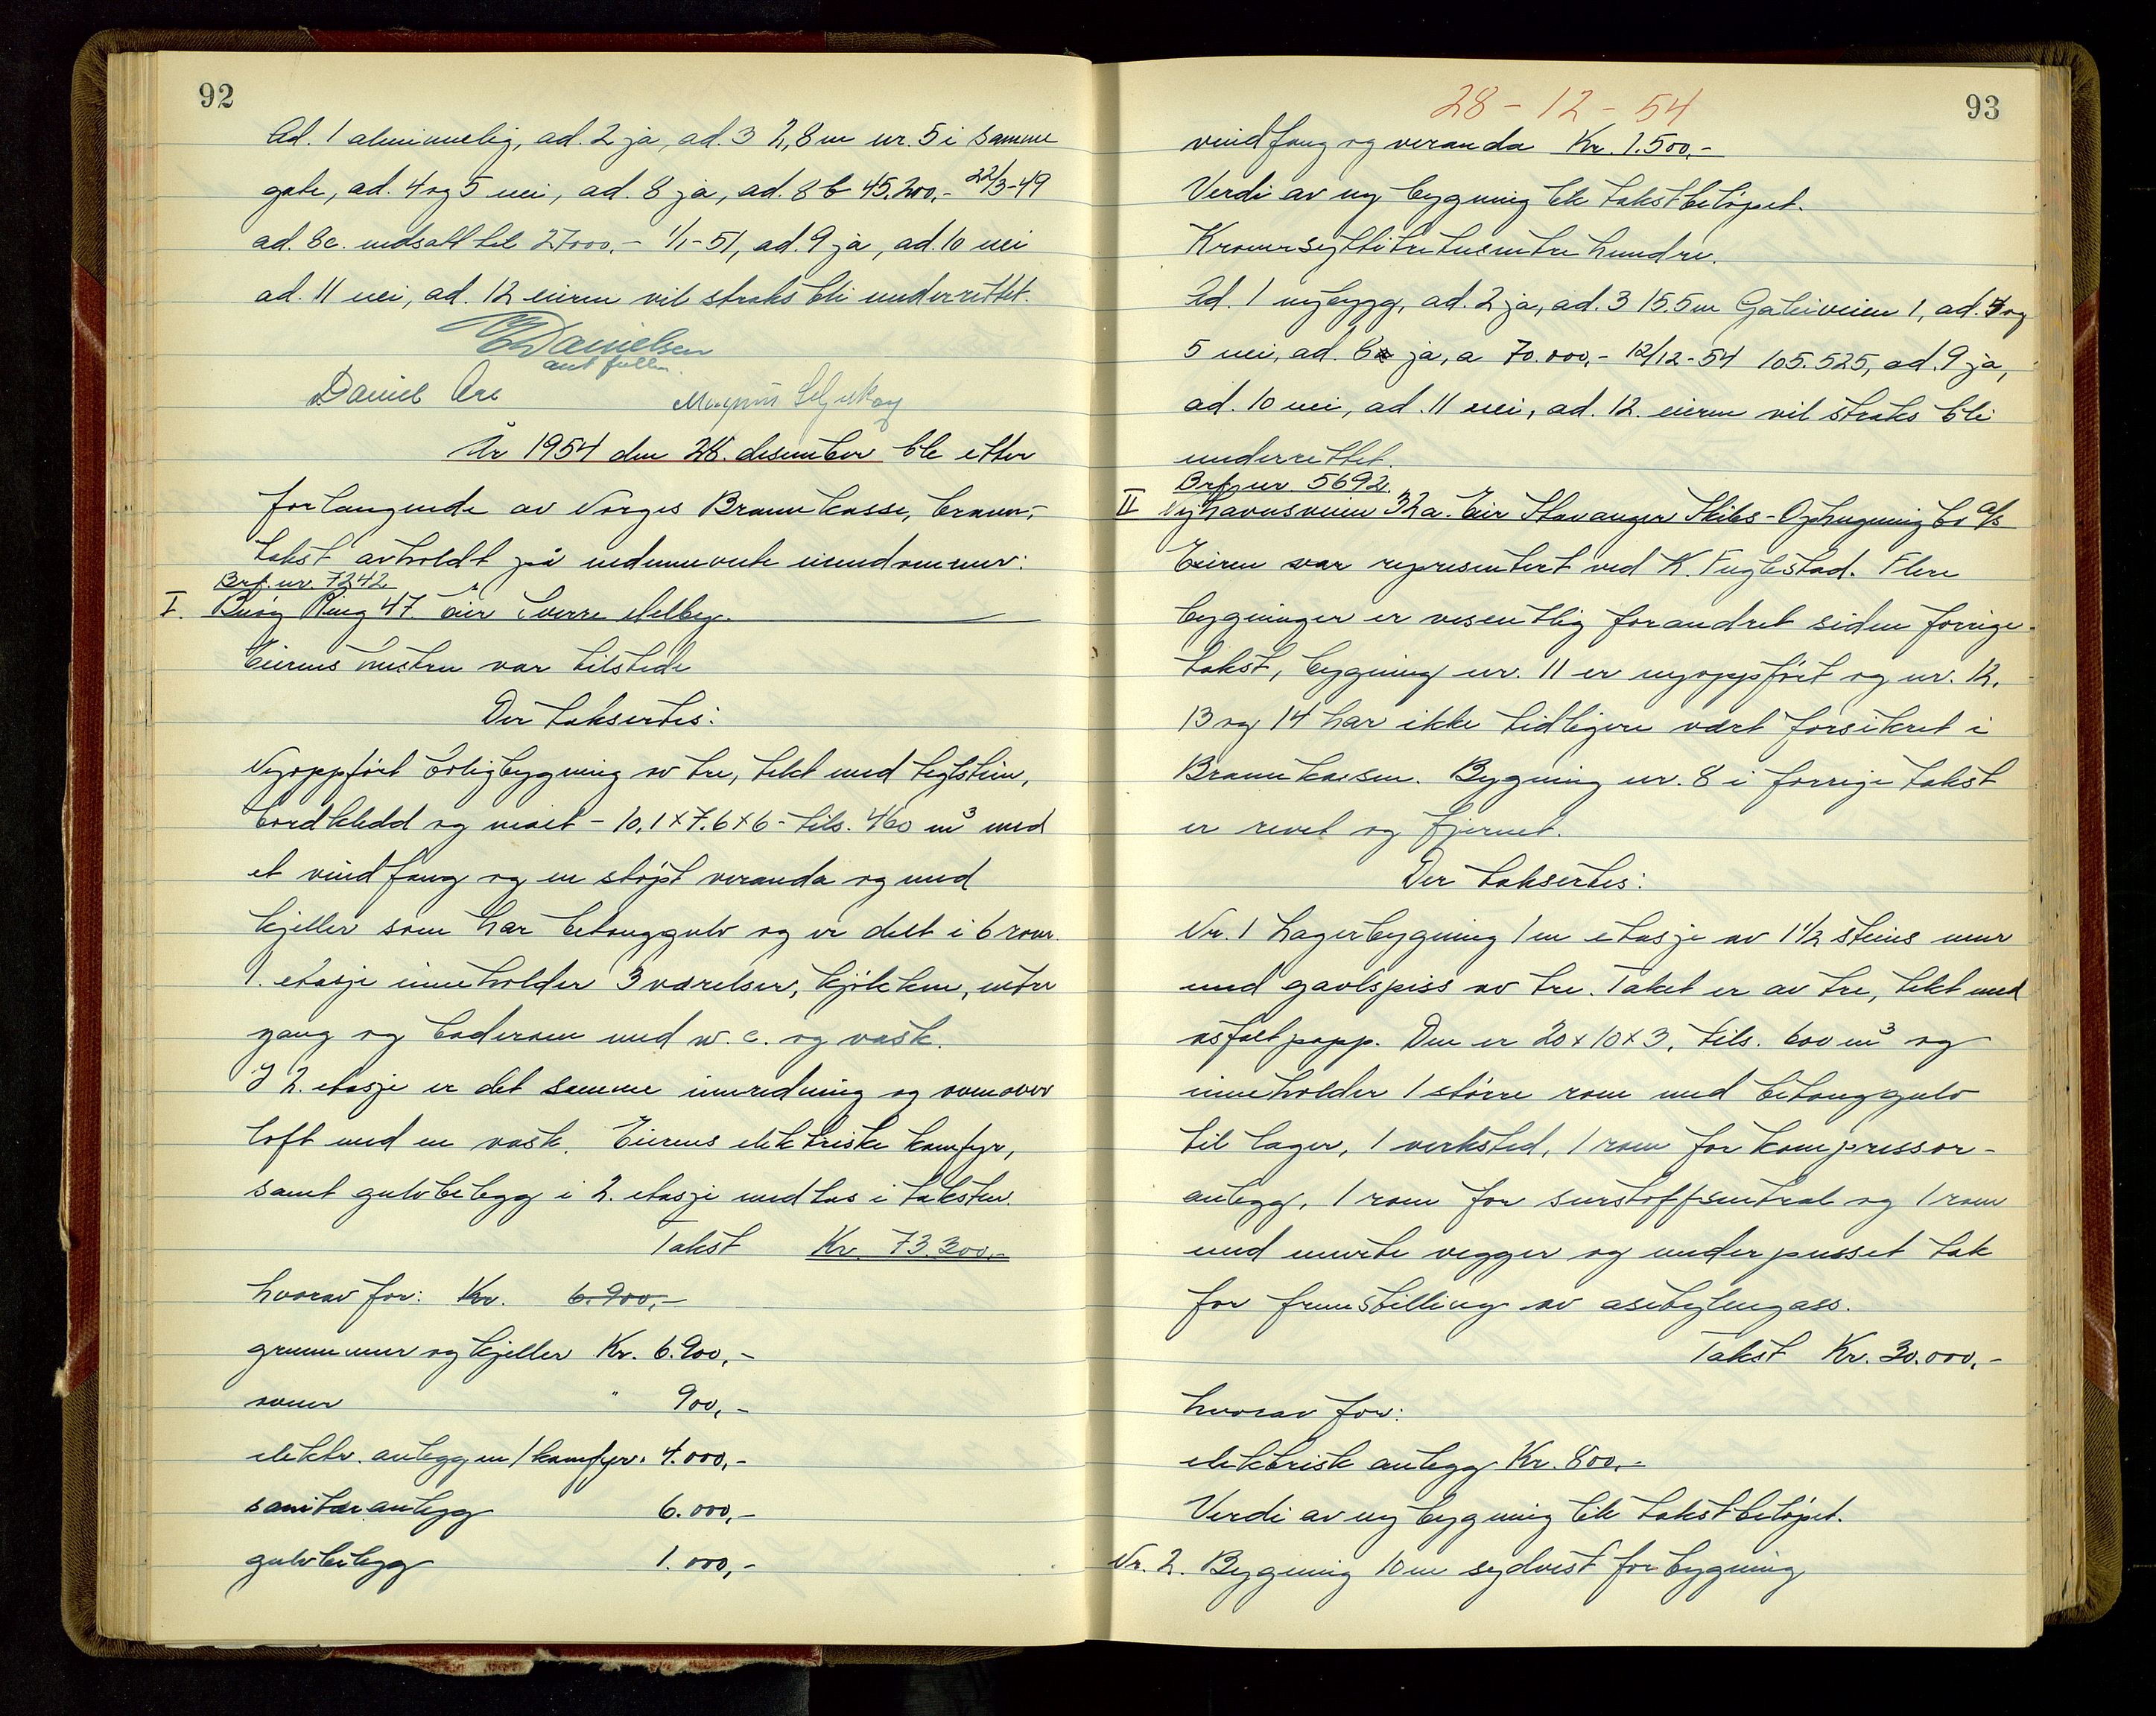 92
Ad. 1 alminnelig, ad. 2 ja, ad. 3 2,8 m nr. 5 i samme
gate, ad. 4 og 5 nei, ad. 8 ja, ad. 8 b 45.200,- 22/3-49
ad. 8c. nedsatt til 27000,- 1/1-51, ad. 9 ja, ad. 10 nei
ad. 11 nei, ad. 12 eieren vil straks bli underrettet.
Danielsen
Daniel Are
Magnus
År 1954 den 28. desember ble etter
forlangende av Norges Brannkasse, brann-
takst avholdt på nedennevnte eiendommer:
Brf. nr. 7242
I. Buøy Ring 47. Eier Sverre Melbey.
Eierens hustru var tilstede
Der taksertes:
Nyoppført boligbygning av tre, tekt med teglstein,
bordkledd og malt - 10,1 x 7.6 x 6 - tils. 460 m³ med
et vindfang og en støpt veranda og med
kjeller som har betonggulv og er delt i 6 rom.
1. etasje inneholder 3 værelser, kjøkken, entre
gang og baderom med w. c. og vask.
I 2. etasje er det samme innredning og ovenover
loft med en vask. Eierens elektriske komfyr,
samt gulvbelegg i 2. etasje medtas i taksten.
Takst Kr. 73.300,-
hvorav for: Kr. 6.900,-
grunnmur og kjeller Kr. 6.900,-
ovner " 900,-
elektr. anlegg m/komfyr. 4.000,-
sanitæranlegg 6.000,-
gulvbelegg 1.000,-
28-12-54
93
vindfang og veranda Kr. 1.500,-
Verdi av ny bygning lik takstbeløpet.
Kroner syttitretusentrehundre.
Ad. 1 nybygg, ad. 2 ja, ad. 3 15.5 m Galeiveien 1, ad. 4 og
5 nei, ad. 8 ja, a 70.000,- 12/12-54 105.525, ad. 9 ja,
ad. 10 nei, ad. 11 nei, ad. 12. eieren vil straks bli
underrettet.
Brf. nr. 5692.
II Nyhavnsveien 32a. Eier Stavanger Skibs-Ophugning Co a/s
Eieren var representert ved K. Fuglestad. Flere
bygninger er vesentlig forandret siden forrige
takst, bygning nr. 11 er nyoppført og nr. 12,
13 og 14 har ikke tidligere vært forsikret i
Brannkassen. Bygning nr. 8 i forrige takst
er revet og fjernet.
Der taksertes:
Nr. 1 Lagerbygning 1 en etasje av 1 1/2 steins mur
med gavlspiss av tre. Taket er av tre, tekt med
asfaltpapp. Den er 20 x 10 x 3, tils. 600 m³ og
inneholder 1 større rom med betonggulv
til lager, 1 verksted, 1 rom for kompressor-
anlegg, 1 rom for surstoffsentral og 1 rom
med murte vegger og underpusset tak
for fremstilling av asetylengass.
Takst Kr. 30.000,-
hvorav for:
elektrisk anlegg Kr. 800,-
Verdi av ny bygning lik takstbeløpet.
Nr. 2. Bygning 10 m sydvest for bygning